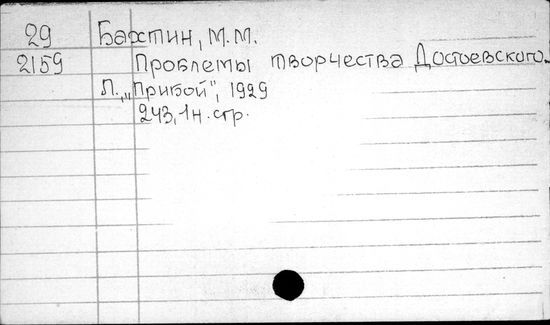 29 Бахтин, М.М.
2159 Проблемы творчества Достоевского.
Л., „Прибой", 1929
243, 1н. стр.